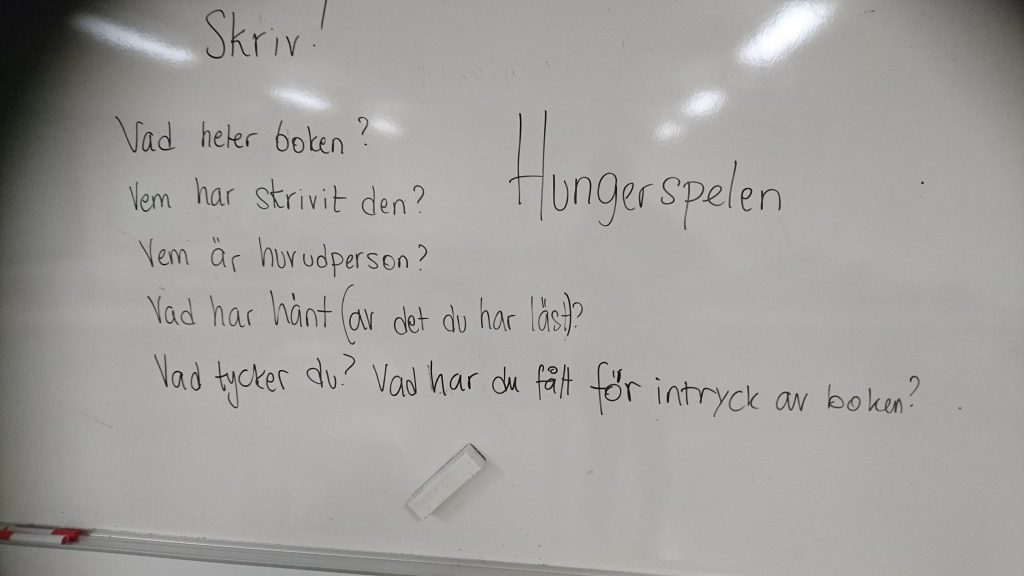 Skriv!
Vad heter boken?
Hungerspelen
Vem har skrivit den?
Vem är huvudperson?
Vad har hänt (av det du har läst)?
Vad tycker du? Vad har du fått för intryck av boken?